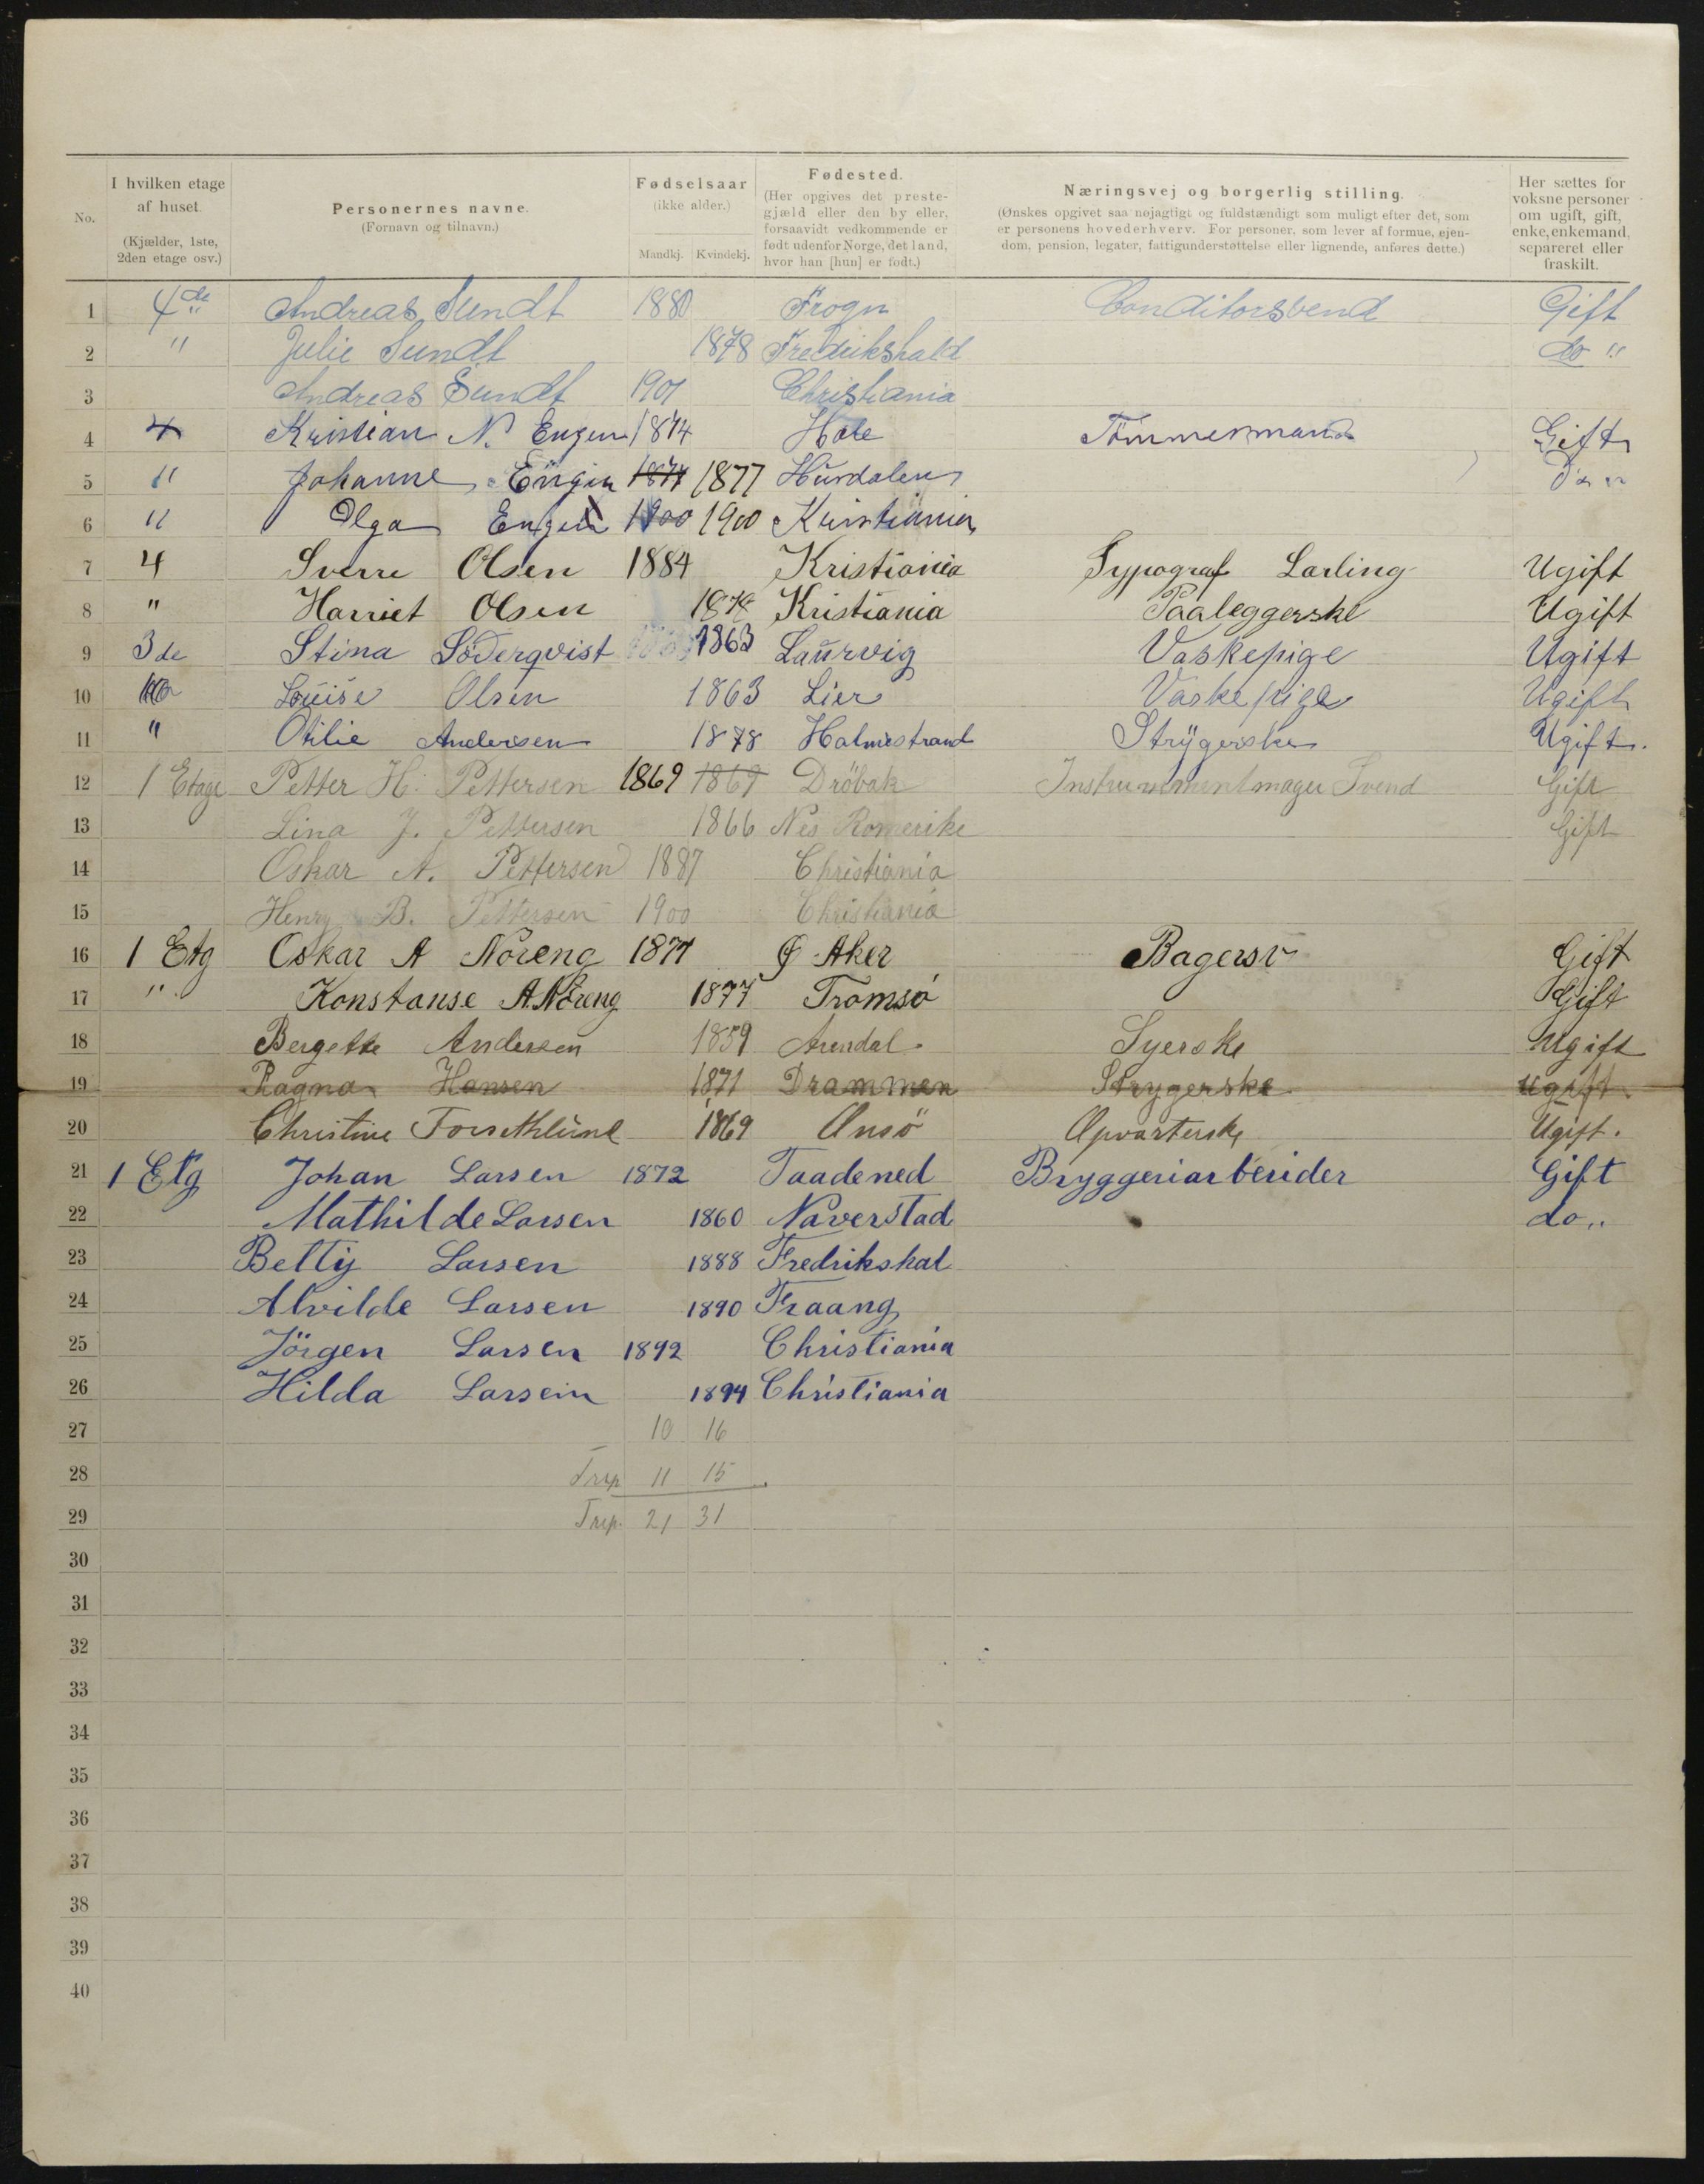 No.
I hvilken etage af huset.
(Kjælder, 1ste, 2den etage osv.)
Personernes navne.
(Fornavn og tilnavn.)
Fødselsaar
(ikke alder.)
Mandkj. Kvindekj.
Fødested.
(Her opgives det prestegjæld eller den by eller, forsaavidt vedkommende er født udenfor Norge, det land, hvor han [hun] er født.)
Næringsvej og borgerlig stilling.
(Ønskes opgivet saa nøjagtigt og fuldstændigt som muligt efter det, som er personens hovederhverv. For personer, som lever af formue, ejendom, pension, legater, fattigunderstøttelse eller lignende, anføres dette.)
Her sættes for voksne personer om ugift, gift, enke, enkemand, separeret eller fraskilt.
1 4de Andreas Sundt 1880 Frogn Conditorsvend Gift
2 " Julie Sundt 1878 Fredrikshald do "
3 Andreas Sundt 1901 Christiania
4 4 Kristian N. Engen 1874 Hole Tömmermand Gift
5 " Johanne Engen 1874 1877 Hurdalen Do "
6 " Olga Engen 1900 1900 Kristiania
7 4 Sverre Olsen 1884 Kristiania Typograf Larling Ugift
8 " Harriet Olsen 1874 Kristiania Paaleggerske Ugift
9 3de Stina Söderqvist 1863 Laurvig Vaskepige Ugift
10 Louise Olsen 1863 Lier Vaskepige Ugift
11 " Otilie Andersen 1878 Holmestrand Strygerske Ugift.
12 1 Etage Petter H. Pettersen 1869 1869 Dröbak Instrummentmager Svend Gift
13 Lina J. Pettersen 1866 Nes Romerike Gift
14 Oskar A. Pettersen 1887 Christiania
15 Henry B. Pettersen 1900 Christiania
16 1 Etg Oskar A Noreng 1874 Ø Aker Bagersv Gift
17 " Konstanse A. Noreng 1877 Tromsö Gift
18 Bergette Andersen 1859 Arendal. Syerske Ugift
19 Ragna Hansen 1871 Drammen Strygerske Ugift
20 Christine 1869 Onsö Opvarterske Ugift.
21 1 Etg Johan Larsen 1872 Taadened Bryggeriarbeider Gift
22 Mathilde Larsen 1860 Naverstad do "
23 Betty Larsen 1888 Fredrikshal
24 Alvilde Larsen 1890 Fraang
25 Jörgen Larsen 1892 Christiania
26 Hilda Larsen 1894 Christiania
27 10 16
28 Trsp 11 15
29 Trsp. 21 31
30
31
32
33
34
35
36
37
38
39
40